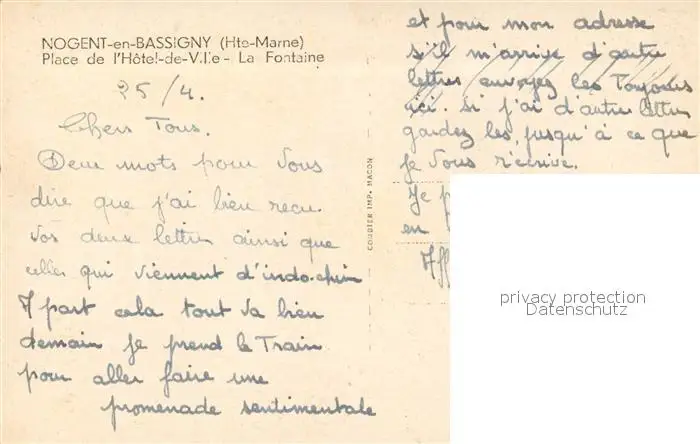 NOGENT-en-BASSIGNY (Hte-Marne)
Place de l'Hôtel-de-Ville - La Fontaine
25/4.
Chers Tous.
Deux mots pour Vous
dire que j'ai bien recu
Vos deux lettres ainsi que
celles qui viennent d'indo.chine
A part cela tout va bien
demain je prend le Train
pour aller faire une
promenade sentimentale
COMBIER IMP. MACON
et pour mon adresse
s'il m'arrive d'autre
lettres envoyez les Toujours
ici. si j'ai d'autre lettres
gardez les jusqu'à ce que
je Vous r'écrive.
Je
en
privacy protection
Datenschutz